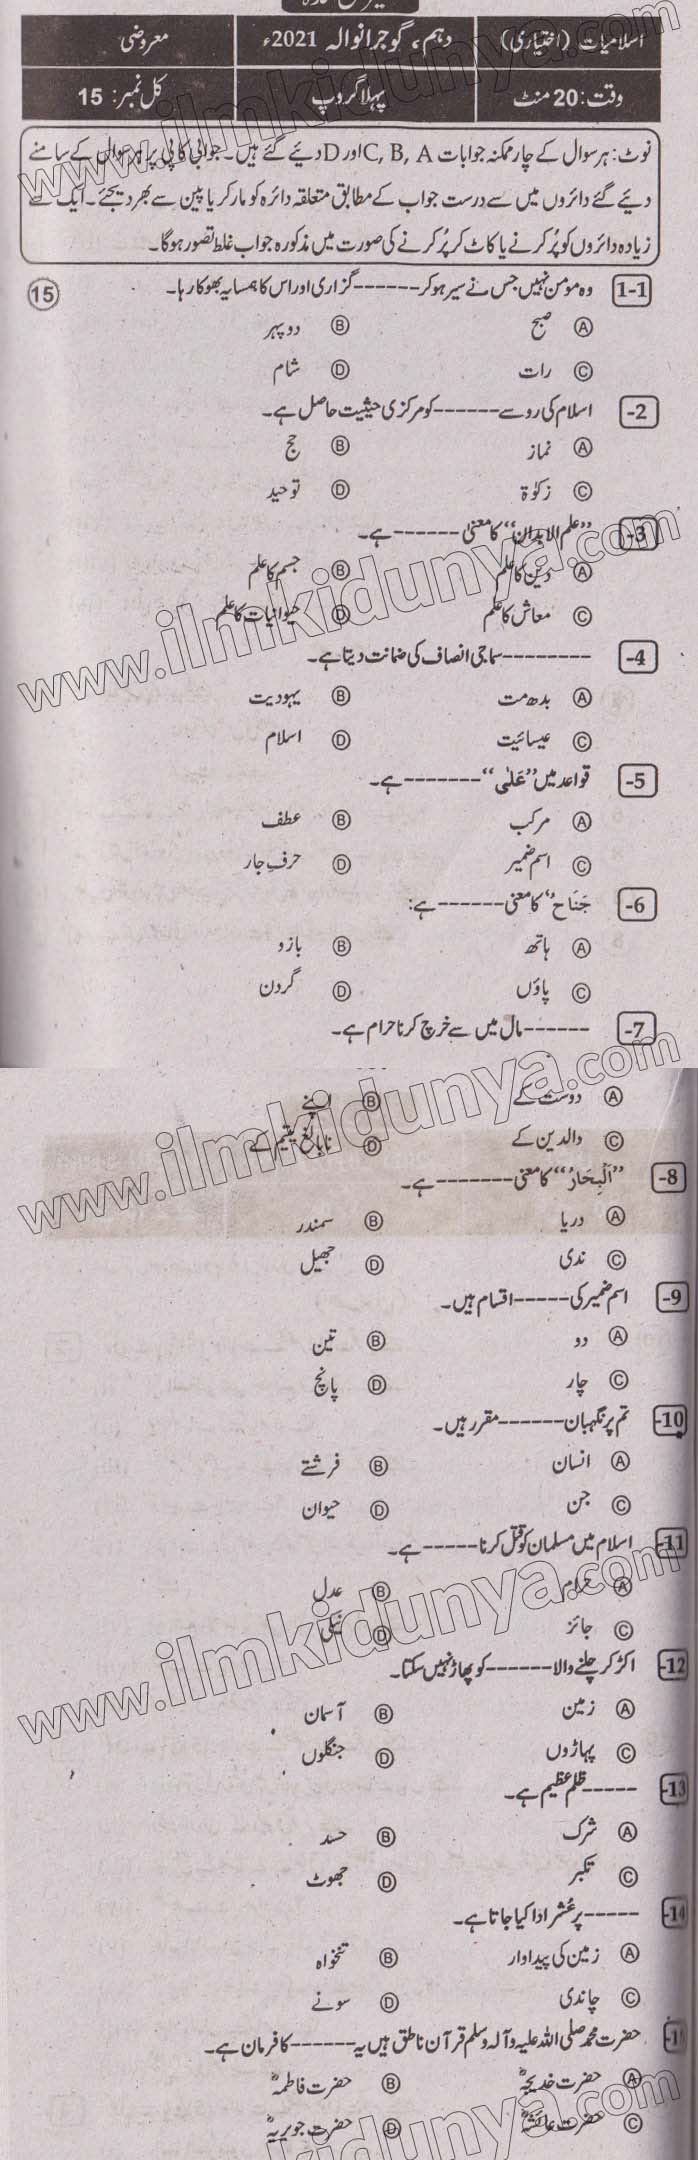 اسلامیات (اختیاری) دہم، گوجرانوالہ 2021ء معروضی
وقت: 20 منٹ پہلا گروپ کل نمبر: 15
نوٹ: ہر سوال کے چار ممکنہ جوابات A ,B ,C اور D دیئے گئے ہیں۔ جوابی کاپی پر ہر سوال کے سامنے
دیئے گئے دائروں میں سے درست جواب کے مطابق متعلقہ دائرہ کو مارکر یا پین سے بھر دیجئے۔ ایک سے
زیادہ دائروں کو پُر کرنے یا کاٹ کر پُر کرنے کی صورت میں مذکورہ جواب غلط تصور ہوگا۔
1-1 وہ مومن نہیں جس نے سیر ہو کر ------ گزاری اور اس کا ہمسایہ بھوکا رہا۔ 15
A صبح B دوپہر
C رات D شام
2- اسلام کی رو سے ------ کو مرکزی حیثیت حاصل ہے۔
A نماز B حج
C زکوٰۃ D توحید
3- ”علم الابدان“ کا معنیٰ ------ ہے۔
A دین کا علم B جسم کا علم
C معاش کا علم D حیوانیات کا علم
4- -------- سماجی انصاف کی ضمانت دیتا ہے۔
A بدھ مت B یہودیت
C عیسائیت D اسلام
5- قواعد میں ”عَلٰی“ ------- ہے۔
A مرکب B عطف
C اسم ضمیر D حرفِ جار
6- جَنَاحٌ کا معنی ------ ہے:
A ہاتھ B بازو
C پاؤں D گردن
7- ------ مال میں سے خرچ کرنا حرام ہے۔
A دوست کے B اپنے
C والدین کے D نابالغ یتیم کے
8- ”اَلْبِحَارُ“ کا معنی ------- ہے۔
A دریا B سمندر
C ندی D جھیل
9- اسم ضمیر کی ----- اقسام ہیں۔
A دو B تین
C چار D پانچ
10- تم پر نگہبان ------ مقرر ہیں۔
A انسان B فرشتے
C جن D حیوان
11- اسلام میں مسلمان کو قتل کرنا ----- ہے۔
A حرام B عدل
C جائز D نیکی
12- اکڑ کر چلنے والا ------ کو پھاڑ نہیں سکتا۔
A زمین B آسمان
C پہاڑوں D جنگلوں
13- ----- ظلم عظیم ہے۔
A شرک B حسد
C تکبر D جھوٹ
14- ----- پر عُشر ادا کیا جاتا ہے۔
A زمین کی پیداوار B تنخواہ
C چاندی D سونے
15- حضرت محمد صلی اللہ علیہ وآلہ وسلم قرآن ناطق ہیں یہ ------ کا فرمان ہے۔
A حضرت خدیجہؓ B حضرت فاطمہؓ
C حضرت عائشہؓ D حضرت جویریہؓ
www.ilmkidunya.com
www.ilmkidunya.com
www.ilmkidunya.com
www.ilmkidunya.com